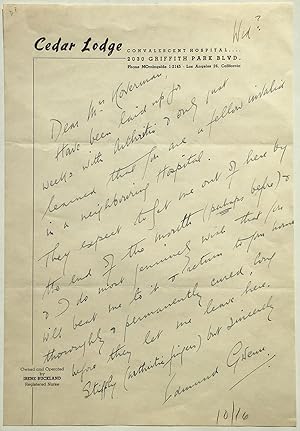 Wed?
Cedar Lodge CONVALESCENT HOSPITAL....
2030 GRIFFITH PARK BLVD.
Phone MOrningside 1-2145 - Los Angeles 26, California
Dear Mrs Koverman,
Have been laid up for
weeks with Arthritis & only just
learned that you are a fellow invalid
in a neighbouring Hospital.
They expect to get me out of here by
the end of the month (perhaps before) &
I do most genuinely wish that you
will beat me to it & return to your home
thoroughly & permanently cured, long
before they let me leave here.
Stiffly (arthritic fingers) but sincerely
Edmund Gwenn.
Owned and Operated
by
IRENE BUCKLAND
Registered Nurse
10/16